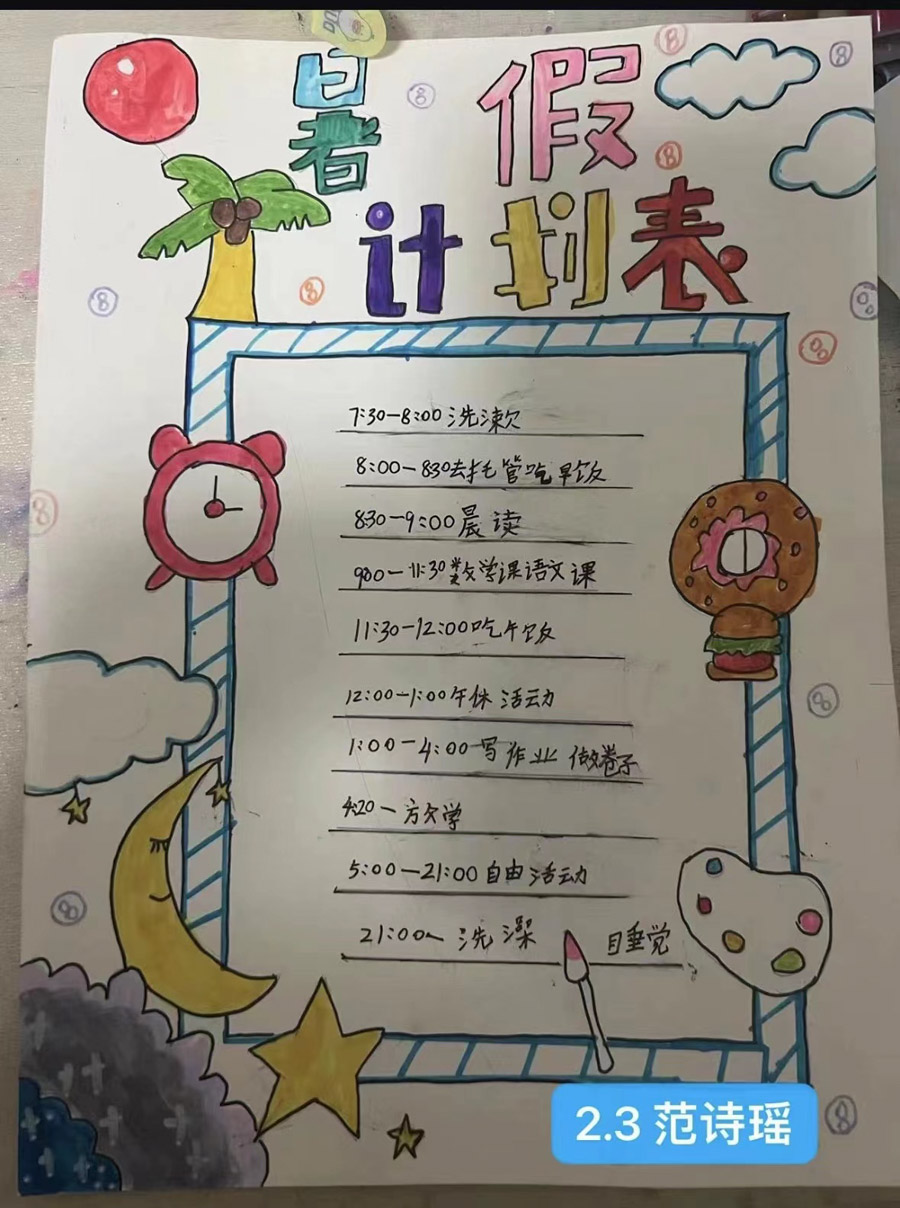 暑 假
计划表
7:30-8:00 洗漱
8:00-830去托管吃早饭
830-9:00晨 读
900-11:30数学课语文课
11:30-12:00吃午饭
12:00-1:00午休 活动
1:00-4:00写作业 做卷子
4:20-方文学
5:00-21:00自由活动
21:00~ 洗澡 睡觉
2.3 范诗瑶